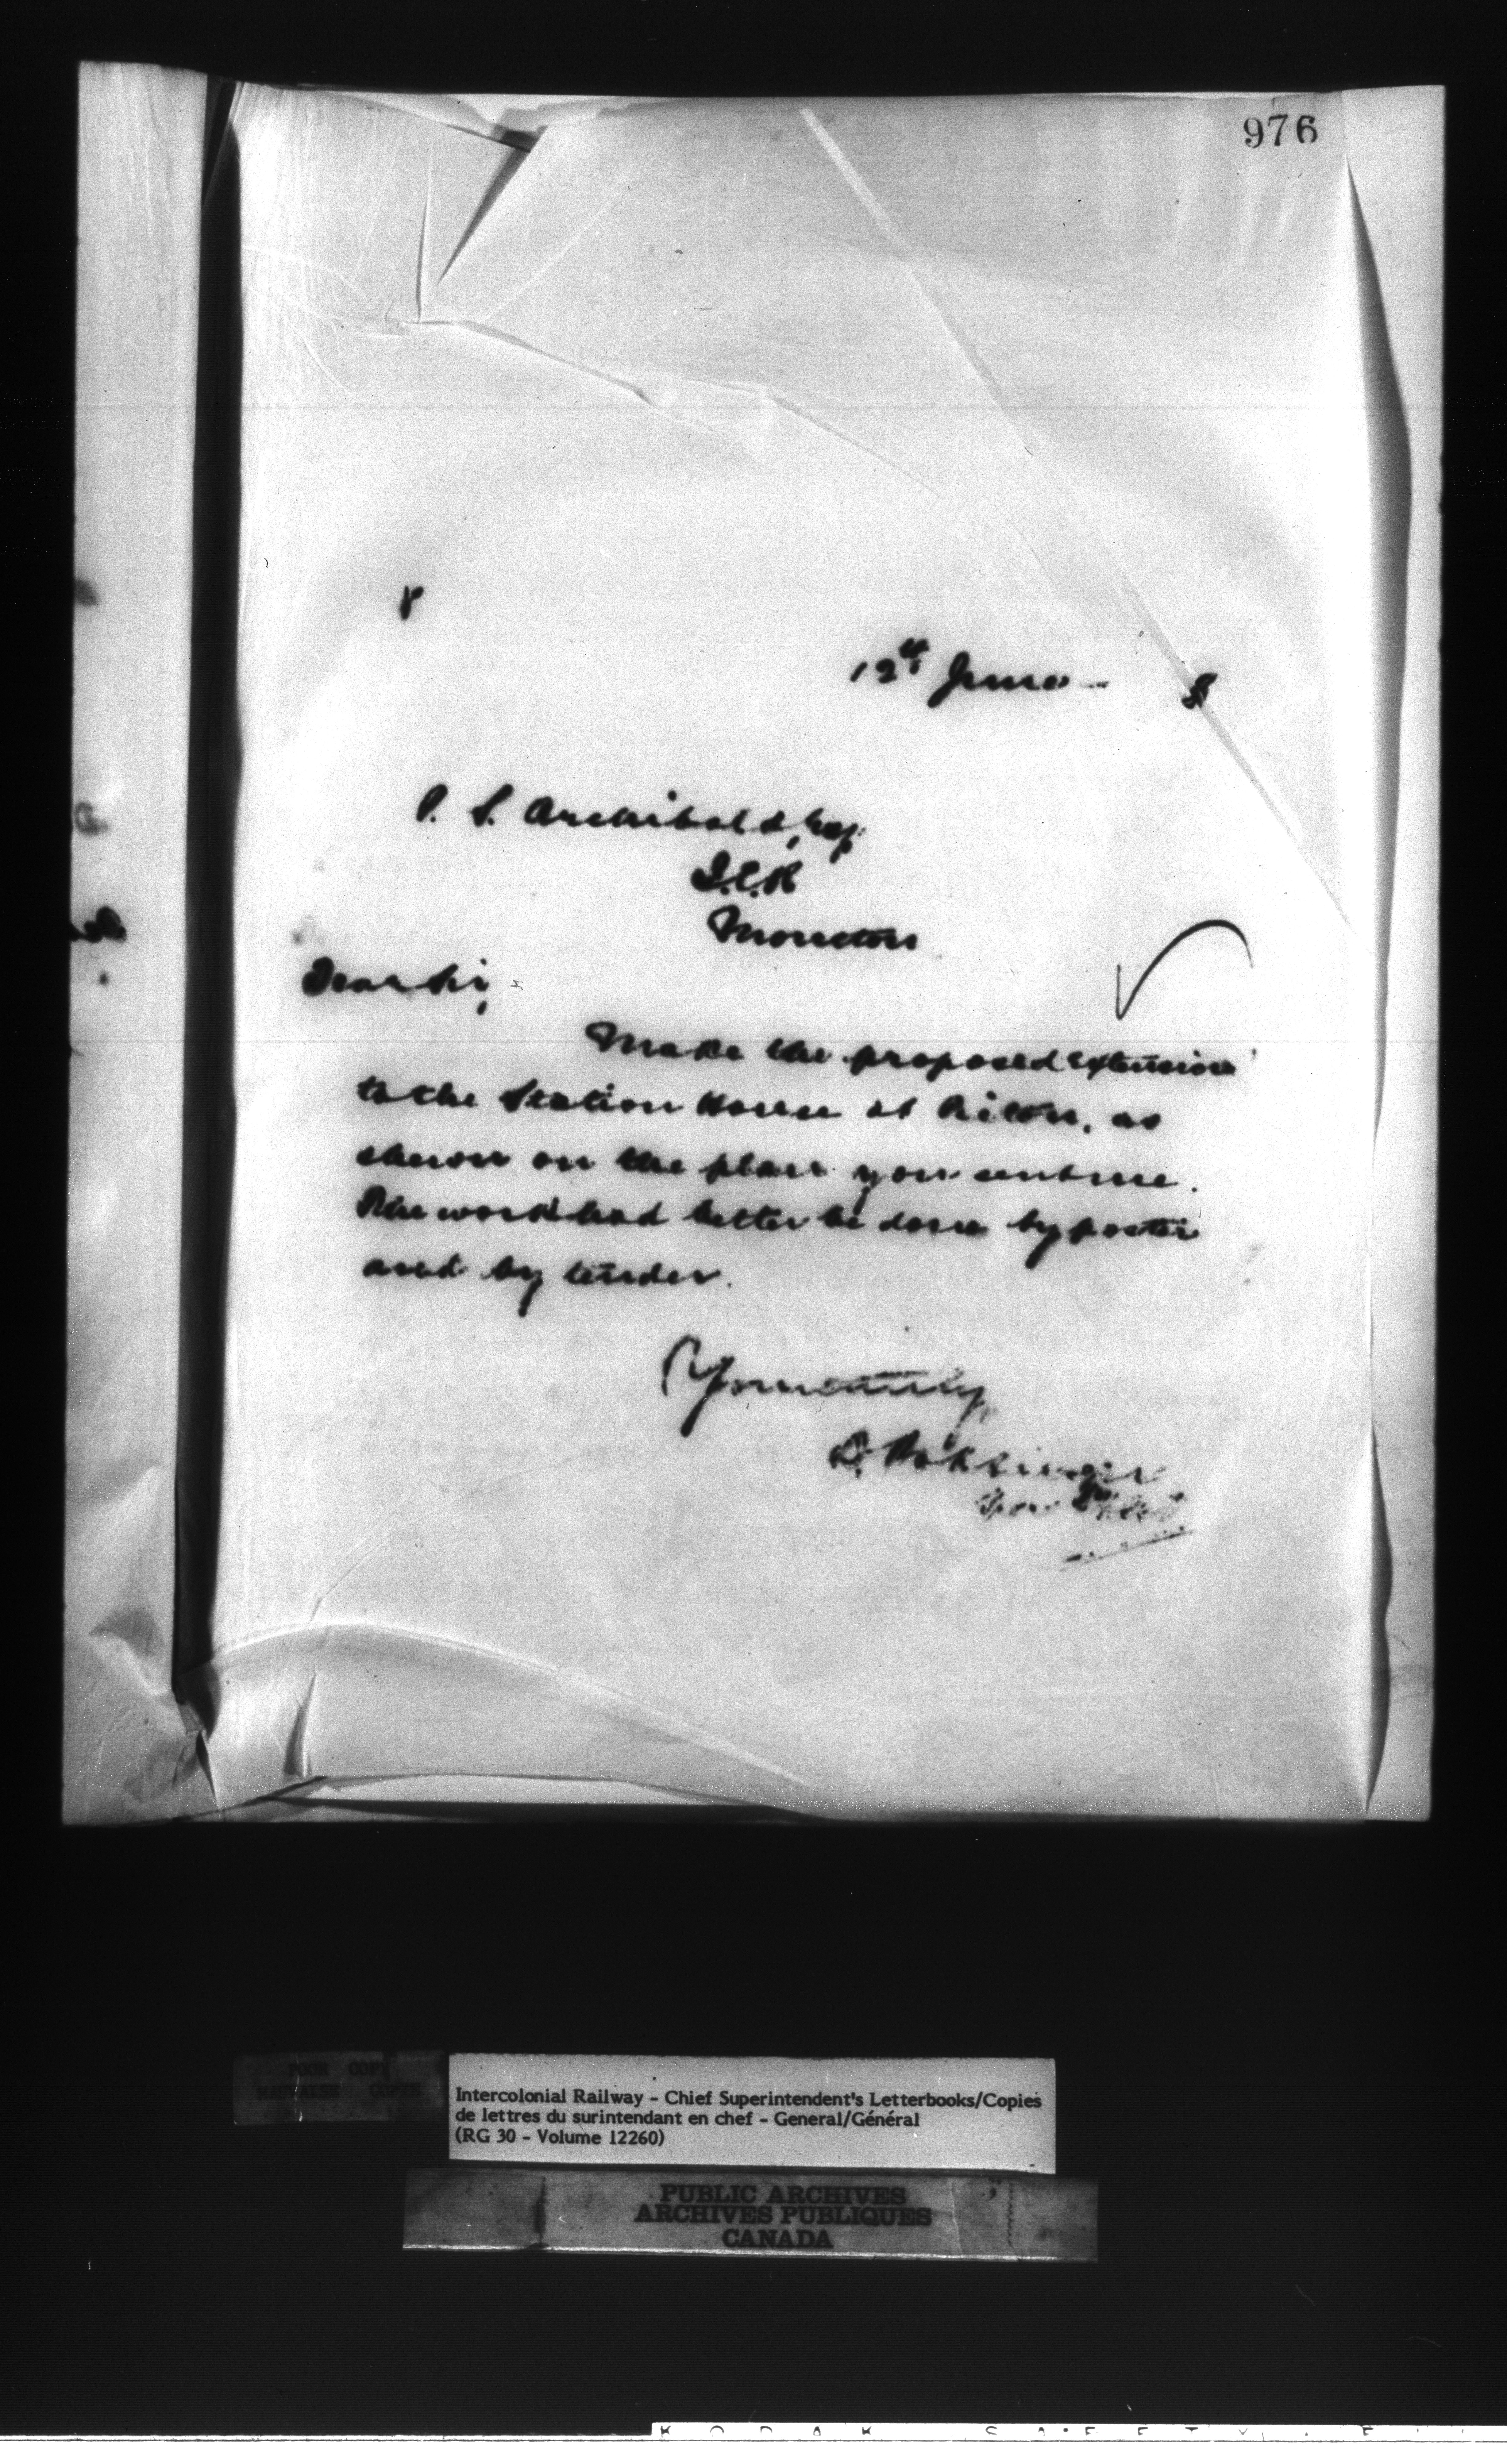 976
12th June 8
P. S. Archibald, Esq.
I.C.R
Moncton
Dear Sir,
Make the proposed extension
to the Station House at Pictou, as
shown on the plan you sent me.
The work had better be done by poster
and by tender.
Yours truly
D. Pottinger
POOR COPY
MAUVAISE COPIE
Intercolonial Railway - Chief Superintendent's Letterbooks/Copies
de lettres du surintendant en chef - General/Général
(RG 30 - Volume 12260)
PUBLIC ARCHIVES
ARCHIVES PUBLIQUES
CANADA
KODAK SAFETY F